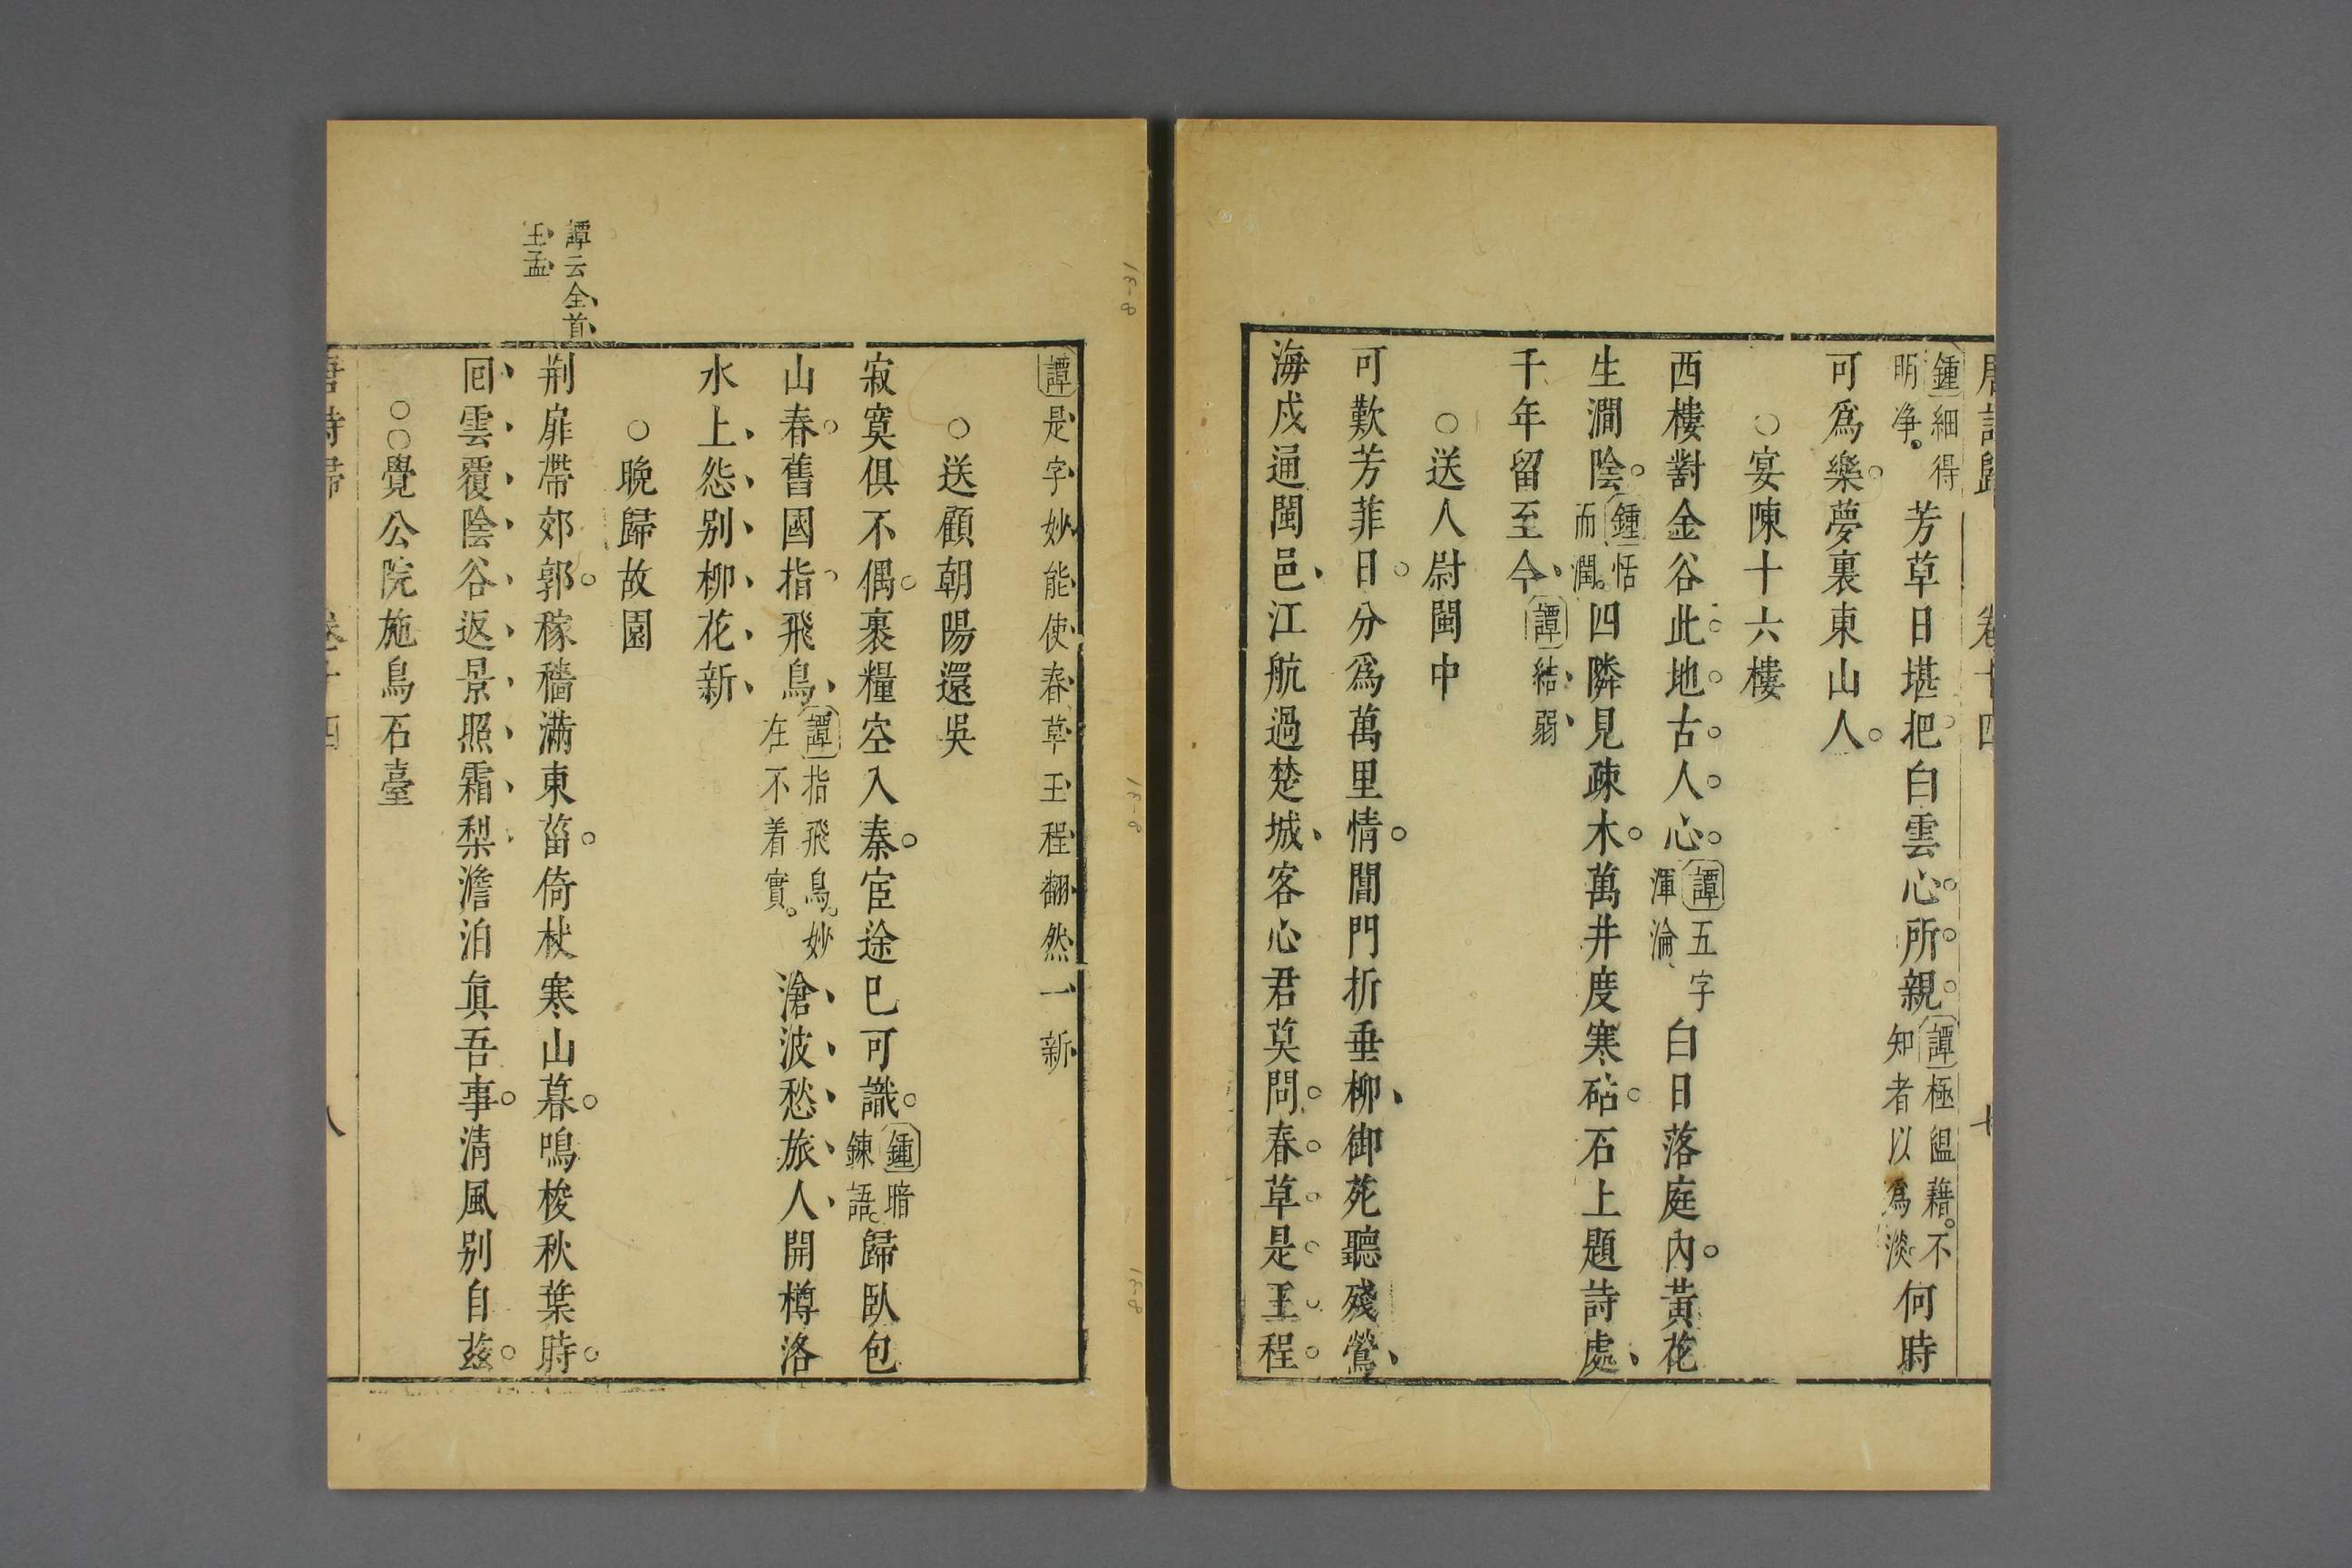 唐詩歸 卷十四 七
鍾細得明净。芳草日堪把白雲心所親譚極醖藉。不知者以爲淡何時
可爲樂夢裏東山人
○宴陳十六樓
西樓對金谷此地古人心譚五字渾淪白日落庭內黃花
生澗陰鍾恬而潤四隣見疎木萬井度寒砧石上題詩處
千年留至今譚結弱
○送人尉閩中
可歎芳菲日分爲萬里情閶門折垂柳御苑聽殘鶯
海戍通閩邑江航過楚城客心君莫問春草是王程
譚是字妙能使春草王程翻然一新
○送顧朝陽還吳
寂寞俱不偶裹糧空入秦宦途巳可識鍾暗鍊語歸臥包
山春舊國指飛鳥譚指飛鳥妙在不着實滄波愁旅人開樽洛
水上怨别柳花新
○晚歸故園
譚云全首王孟
荆扉帶郊郭稼穡滿東菑倚杖寒山暮鳴梭秋葉時
囘雲覆陰谷返景照霜梨澹泊眞吾事清風别自茲
○○覺公院施鳥石臺
唐詩歸 卷十四 八